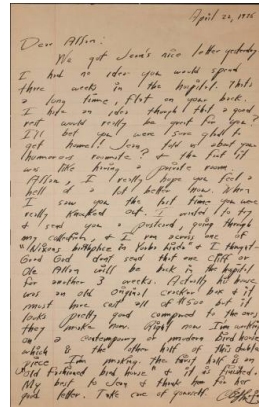 April 20, 1976
Dear Allan:
We got Jean's nice letter yesterday
I had no idea you would spend
three weeks in the hospital. That's
a long time, flat on your back.
I have an idea though that a good
rest would really be great for you?
I'll bet you were sure glad to
get home! Jean told us about your
humorous roomate? & the fact it
was like having a private room.
Allan, I really hope you feel a
hell of a lot better now. When
I saw you the last time you were
really knocked out. I wanted to try
& send you a postcard, going through
my collection, & I ran across one of
"Nixons birthplace in Yorba Linda" & I thought-
Good God dont send that one Cliff or
Ole Allan will be back in the hospital
for another 3 weeks. Actually his house
was an old original cracker box & it
must have cost all of $500 but it
looks pretty good compared to the ones
they make now. Right now I'm working
on a contemporary or modern Bird house
which is the other half of this
piece. I'm making the first half is an
Old Fashioned bird house & it is finished.
My best to Jean & thank her for her
good letter. Take care of yourself
Cliff